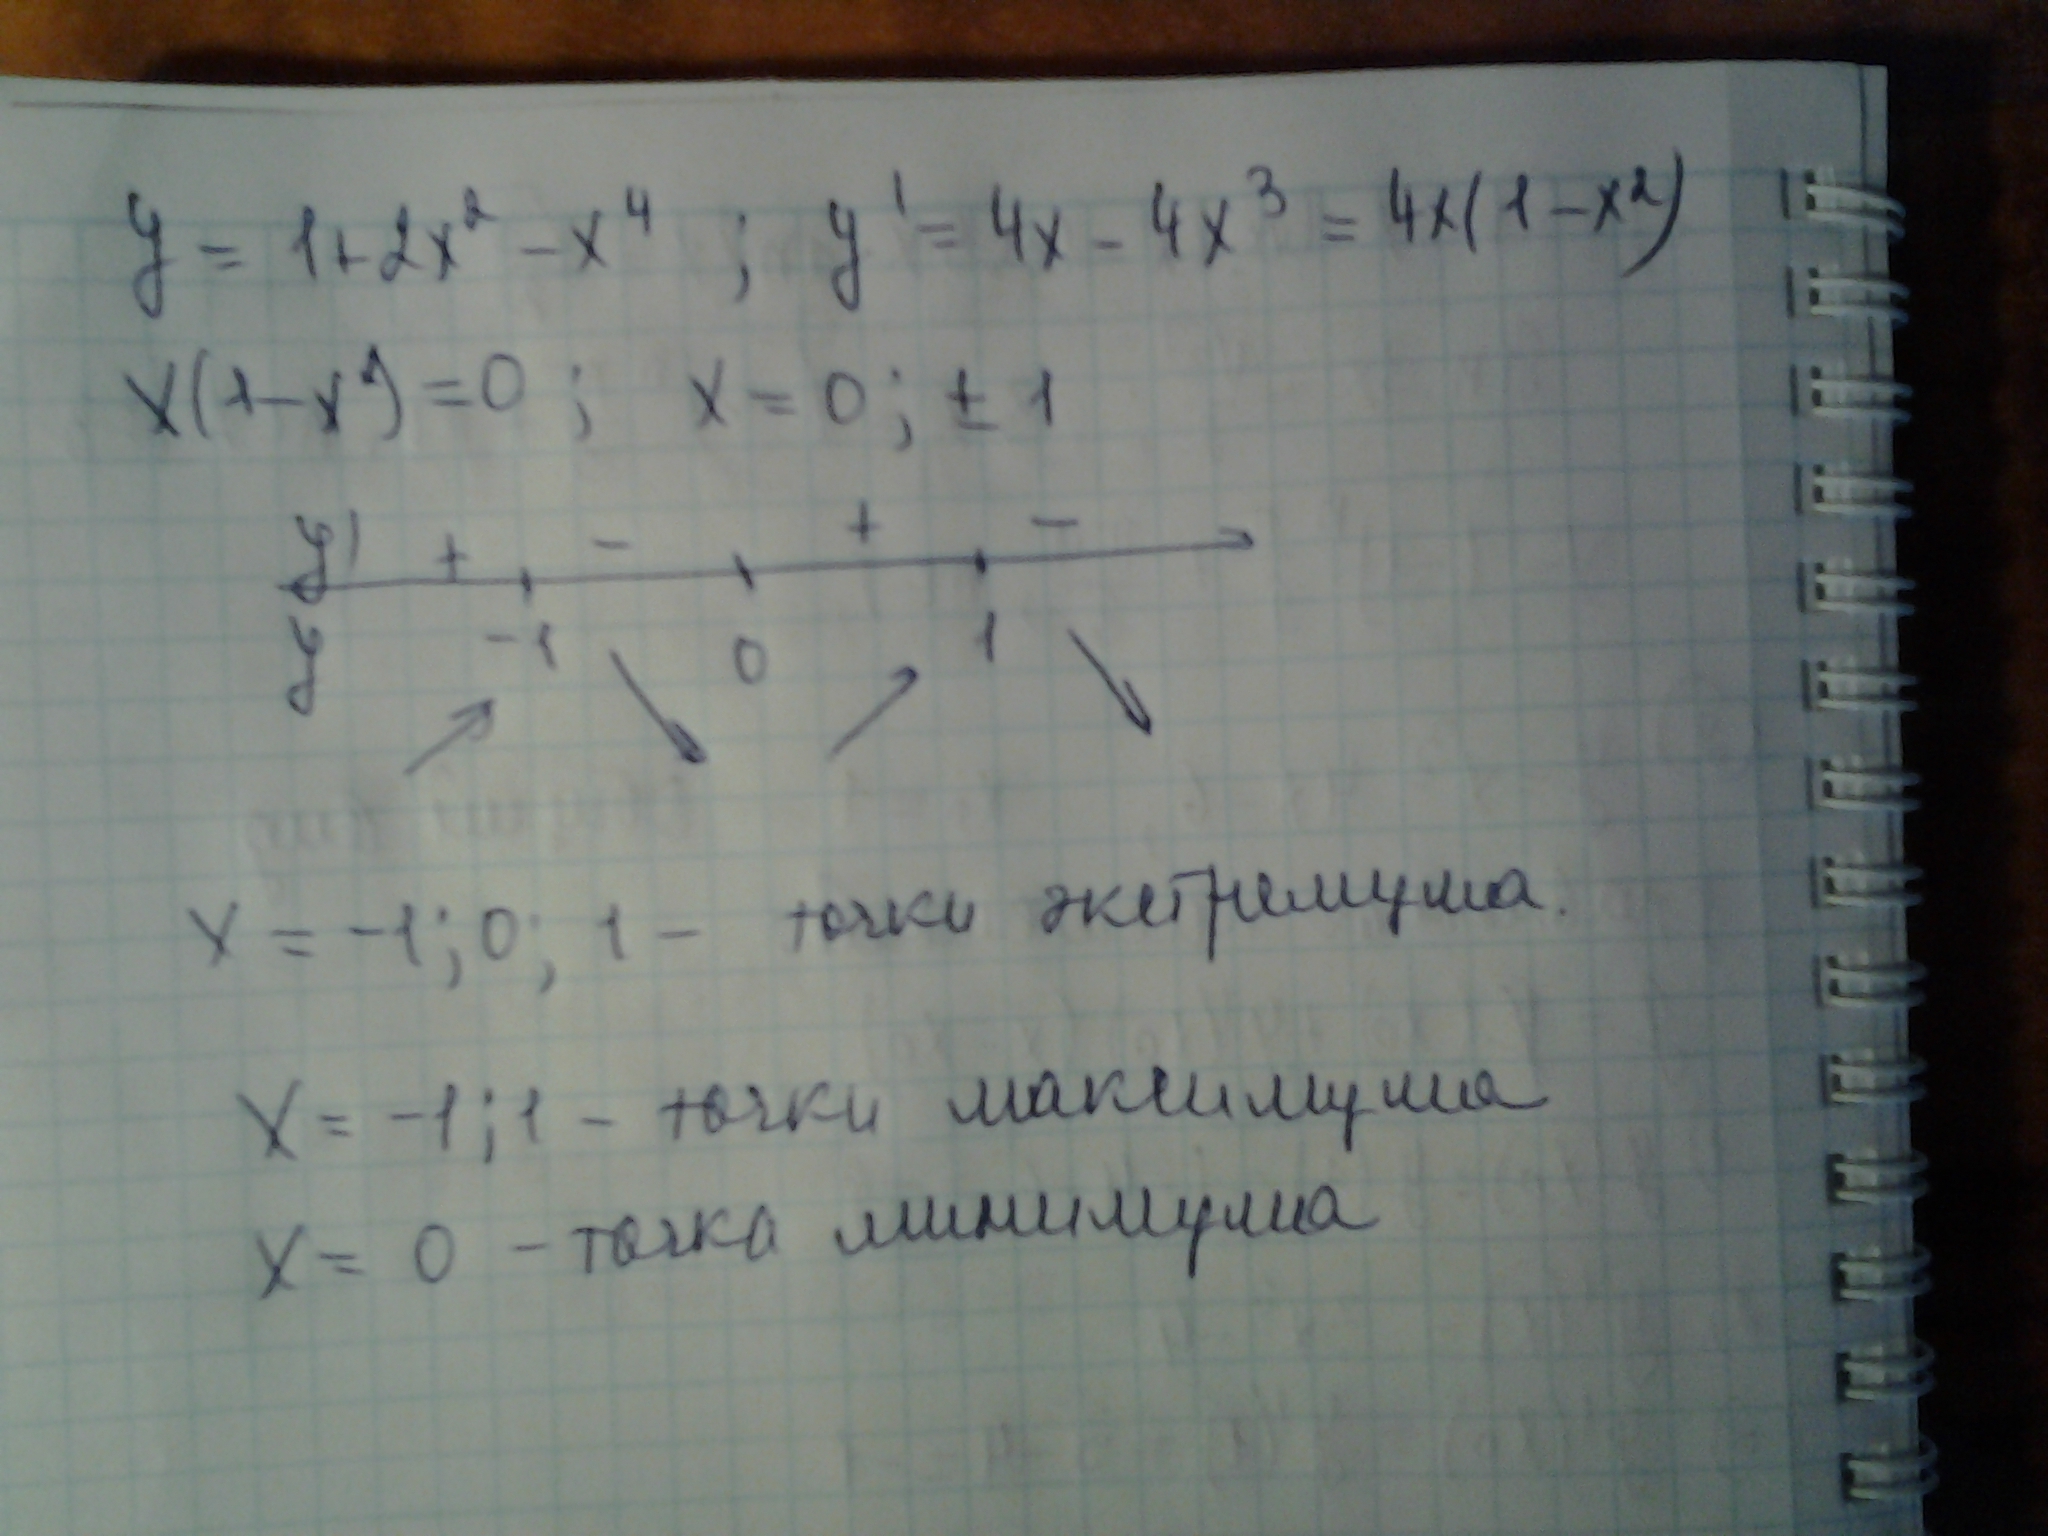 y = 1+2x² – x⁴ ; y' = 4x – 4x³ = 4x(1–x²)
x(1–x²) = 0 ; x = 0 ; ± 1
y' + – + –
y -1 0 1
x = -1; 0; 1 – точки экстремума.
x = -1; 1 – точки максимума
x = 0 – точка минимума